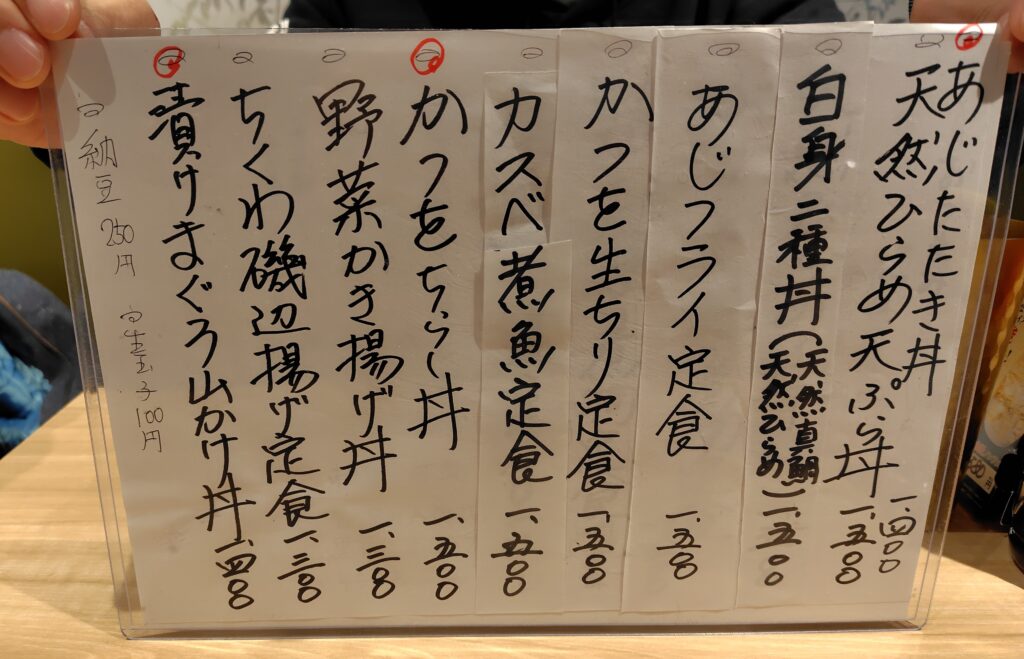 あじたたき丼 一、四〇〇
天然ひらめ天ぷら丼 一、五〇〇
白身二種丼(天然真鯛
天然ひらめ)一、五〇〇
あじフライ定食 一、五〇〇
かつを生ちり定食 一、五〇〇
カスベ煮魚定食 一、五〇〇
かつをちらし丼 一、五〇〇
野菜かき揚げ丼 一、三〇〇
ちくわ磯辺揚げ定食 一、三〇〇
漬けまぐろ山かけ丼 一、四〇〇
納豆 250円
生玉子 100円